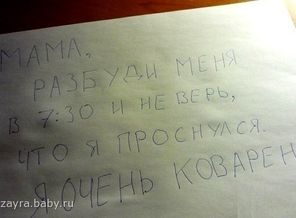 МАМА,
РАЗБУДИ МЕНЯ
В 7:30 И НЕ ВЕРЬ,
ЧТО Я ПРОСНУЛСЯ.
Я ОЧЕНЬ КОВАРЕН
zayra.baby.ru